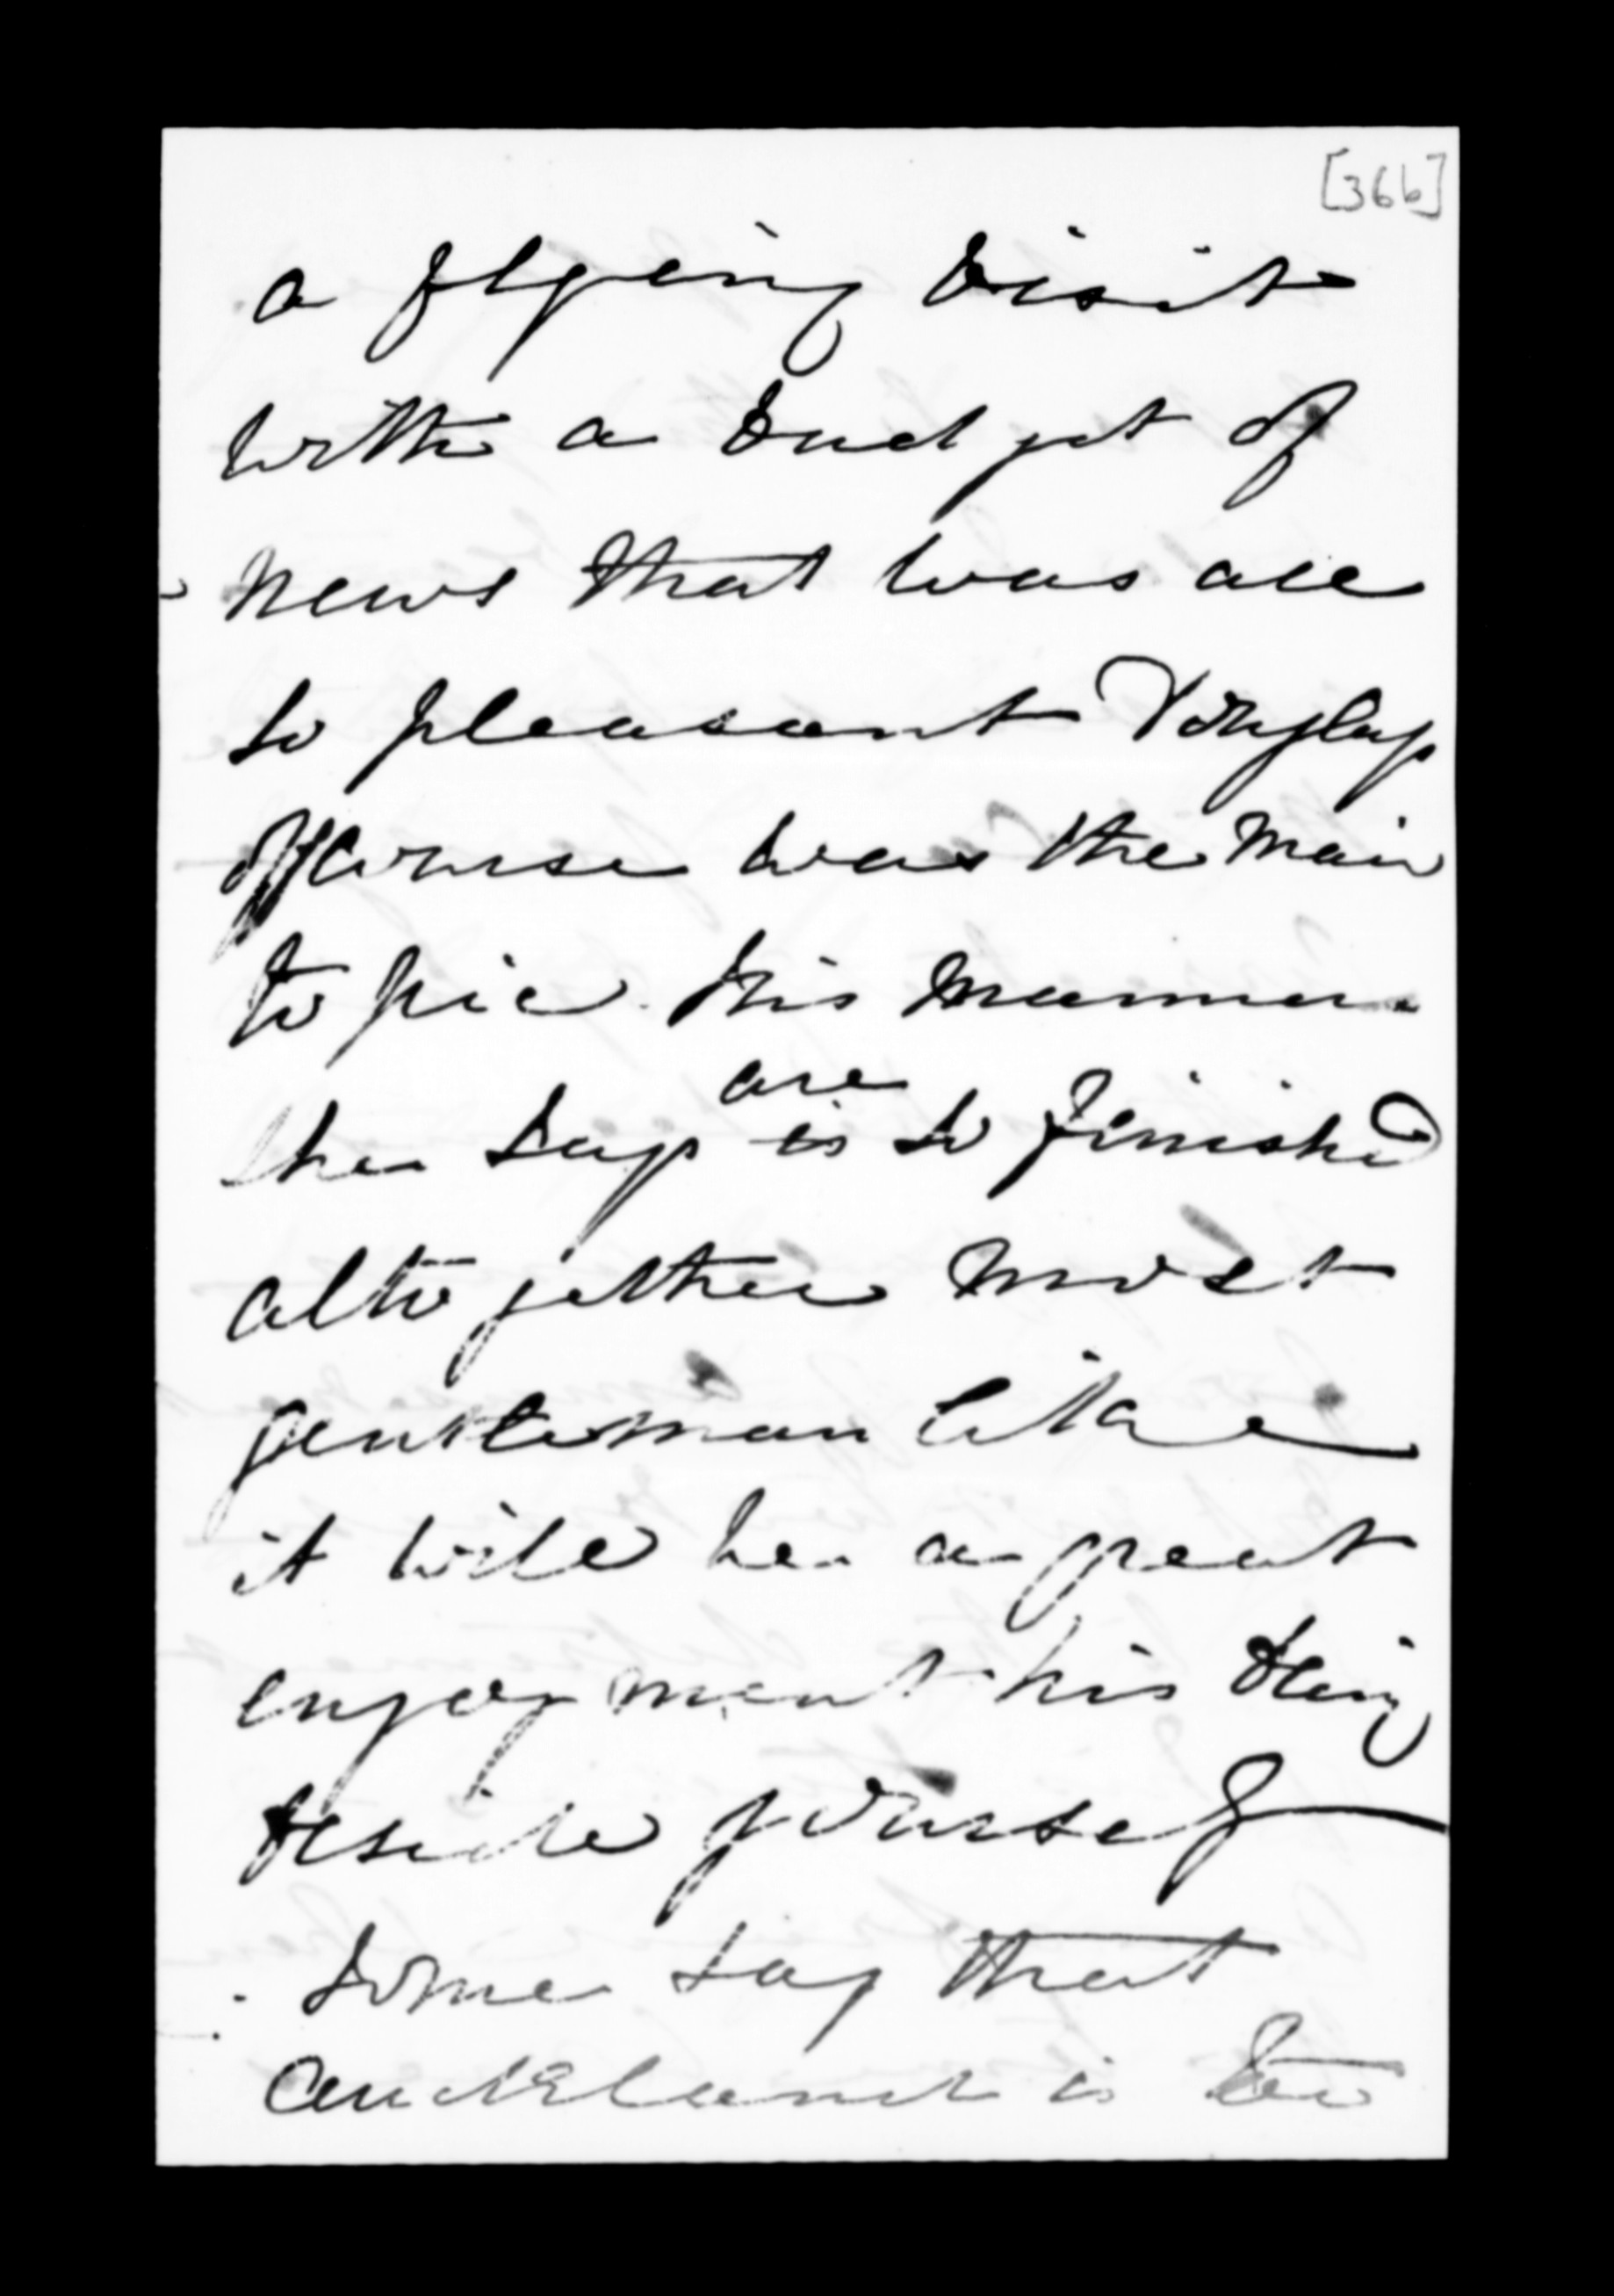 [36b]
a flying visit
with a budget of
news that was all
so pleasant Douglas
of course was the main
topic. his manner
he say are is so finished
altogether most
gentleman like
it will be a great
enjoyment his being
beside yourself
Some say that
Auckland is to